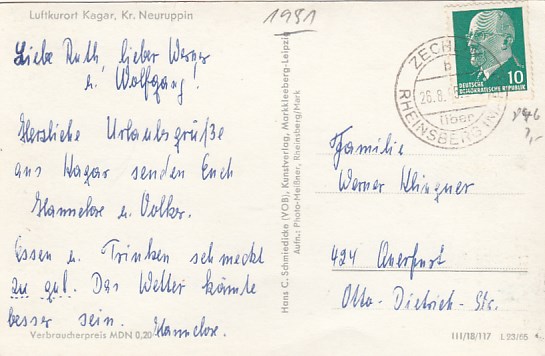 Luftkurort Kagar, Kr. Neuruppin
1981
Liebe Ruth, lieber Werner
u. Wolfgang!
Herzliche Urlaubsgrüße
aus Kagar senden Euch
Hannelore u. Volker.
Essen u. Trinken schmeckt
zu gut. Das Wetter könnte
besser sein. Hannelore.
Verbraucherpreis MDN 0,20
Hans C. Schmiedicke (VOB), Kunstverlag, Markkleeberg-Leipzig
Aufn.: Photo-Meißner, Rheinsberg/Mark
10
DEUTSCHE
DEMOKRATISCHE REPUBLIK
26.8.
über
RHEINSBERG
Familie
Werner Klingner
424 Querfurt
Otto-Dietrich-Str.
III/18/117 L 23/65